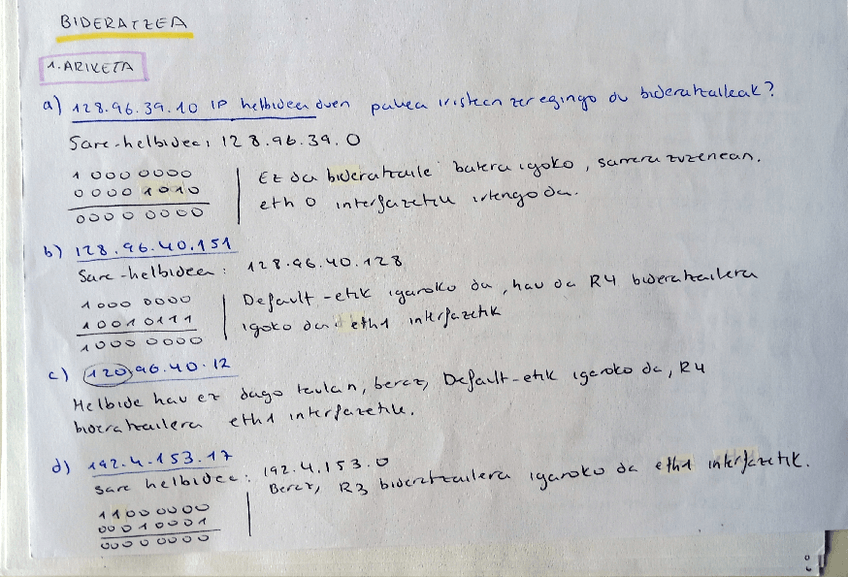 BIDERATZEA
1. ARIKETA
a) 128.96.39.10 IP helbidea duen paketea iristean zer egingo du bideratzaileak?
Sare-helbidea: 128.96.39.0
1 0 0 0 0 0 0 0
0 0 0 0 1 0 1 0
0 0 0 0 0 0 0 0
Ez da bideratzaile batera igoko, sarrera zuzenean.
eth 0 interfazetik irtengo da.
b) 128.96.40.151
Sare-helbidea: 128.96.40.128
1 0 0 0 0 0 0 0
1 0 0 1 0 1 1 1
1 0 0 0 0 0 0 0
Default-etik igaroko da, hau da R4 bideratzailera
igoko da eth1 interfazetik
c) 120.96.40.12
Helbide hau ez dago taulan, beraz, Default-etik igaroko da, R4
bideratzailera eth1 interfazetik.
d) 192.4.153.17
Sare helbidea: 192.4.153.0
1 1 0 0 0 0 0 0
0 0 0 1 0 0 0 1
0 0 0 0 0 0 0 0
Beraz, R3 bideratzailera igaroko da eth1 interfazetik.